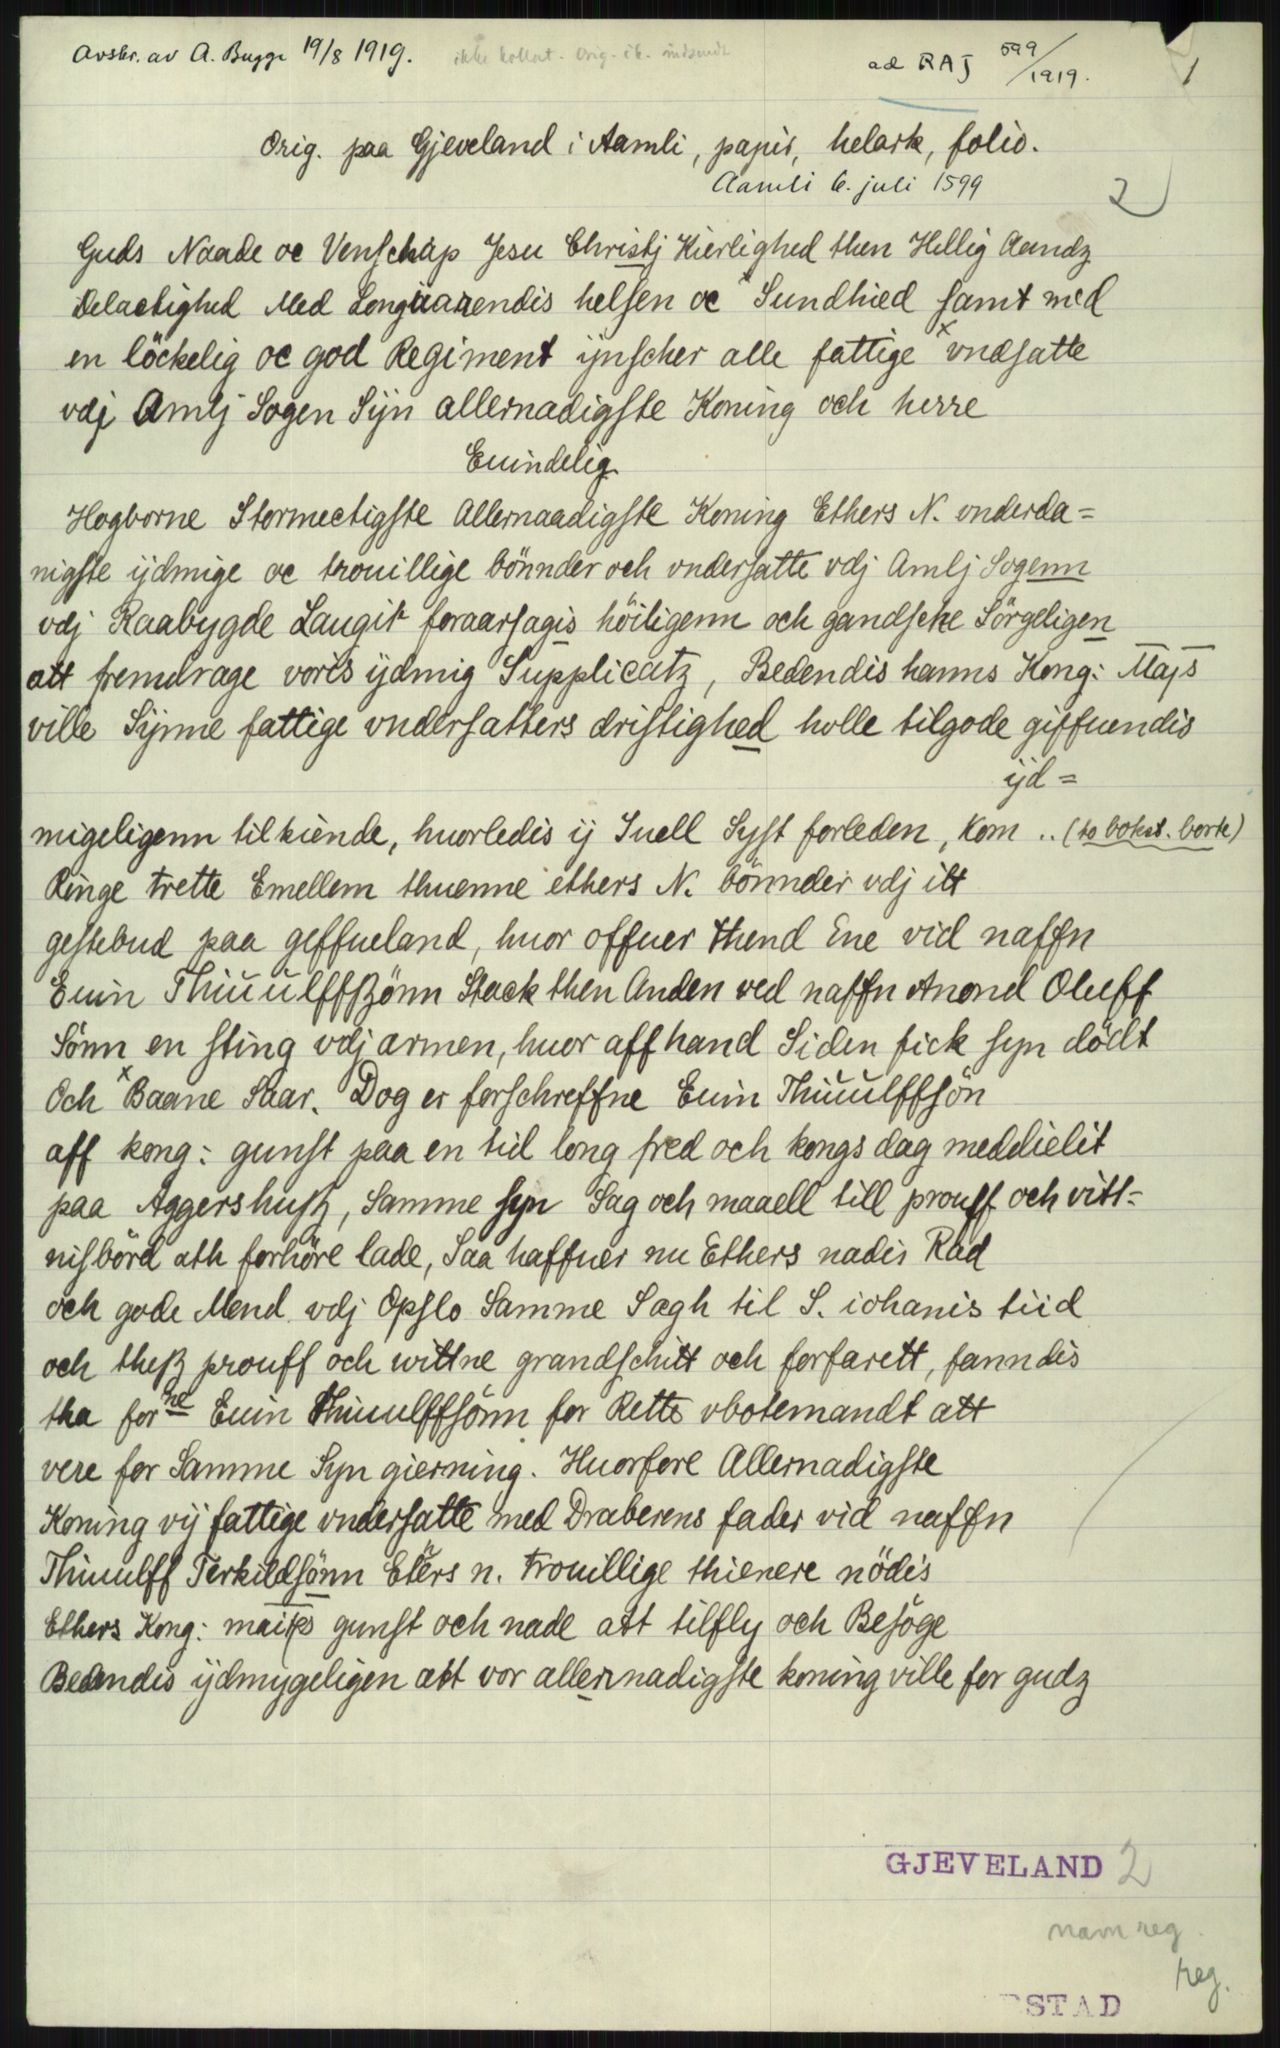 Avskr. av A. Bugge 19/8 1919.
ikke kollat. Orig.
ad RAJ 599/1919.
1
Orig. paa Gjeveland i Aamli, papir, helark, folio.
Aamli 6. juli 1599
2
Guds Naade oc Venschap Jesu Christj Kierlighed then Hellig Aandz
Delactighed Med Longuarendis helsen oc Sundhied samt med
en löckelig oc god Regiment ijnscher alle fattige x vndsatte
vdj Amlj Sogen Sijn allernadigste Koning och herre
Euindelig
Hogborne Stormectigste Allernaadigste Koning Ethers N. vnderda=
nigste ijdmige oc trouillige bönnder och vndersatte vdj Amlj Sogenn
vdj Raabygde Laugit foraarsagis höiligenn och gandsche Sörgeligen
att fremdrage voris ijdmig Supplicatz, Bedendis hanns Kong: Majs
ville Sijnne fattige vndersatters dristighed holle tilgode giffuendis
ijd=
migeligenn tilkiende, huorledis ij Juell Syst forleden, kom .. (to bokst. bork)
Ringe trette Emellem thuenne ethers N. bönnder vdj itt
gestebud paa geffueland, huor offuer thend Ene vid naffn
Euin Thiuulffßönn Stack then Anden ved naffn Anond Oluff
Sönn en sting vdj armen, huor aff hand Siden fick syn dödt
Och x Baane Saar. Dog er forschreffne Euin Thiuulffsön
aff kong: gunst paa en tid long fred och kongs dag meddielit
paa Aggershusß, Samme syn Sag och maaell till prouff och vitt=
nisbörd ath forhöre lade, Saa haffuer nu Ethers nadis Råd
och gode Mend vdj Opslo Samme Sagh til S. iohanis tiid
och theß prouff och wittne grandschitt och forfarett, fanndis
tha forne Euin Thiuulffsönn for Rette vbotemandt att
vere for Samme Syn gierning. Huorfore Allernadigste
Koning vij fattige vndersatte med Draberens fader vid naffn
Thiuulff Terkildsönn Eters n. trouillige thienere nödis
Ethers Kong: maits gunst och nade att tilfly och Besöge
Bedendis ijdmygeligen att vor allernadigste koning ville for gudz
GJEVELAND 2
navn reg.
reg.
STAD